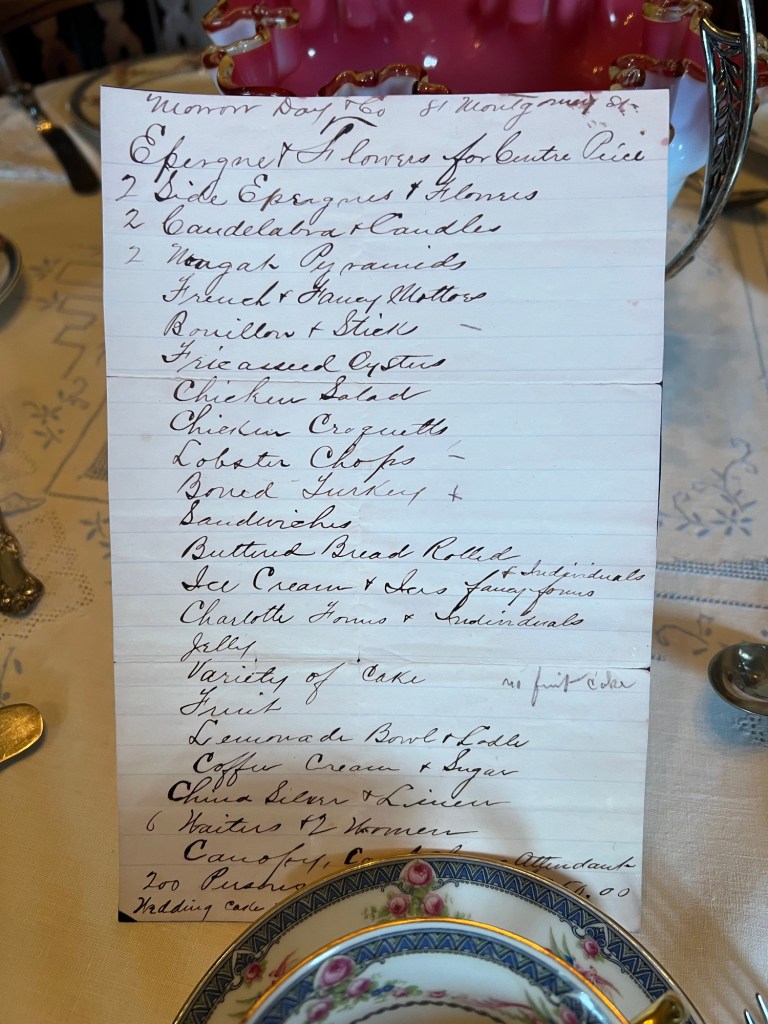 Morrow Day & Co 81 Montgomery St.
Epergne & Flowers for Centre Piece
2 Side Epergnes & Flowers
2 Candelabra & Candles
2 Nougat Pyramids
French & Fancy Mottoes
Bouillon & Sticks –
Fricasseed Oysters
Chicken Salad
Chicken Croquetts
Lobster Chops –
Boned Turkey +
Sandwiches
Buttered Bread Rolled
Ice Cream & Ices fancy forms & Individuals
Charlotte Forms & Individuals
Jelly
Variety of Cake no fruit cake
Fruit
Lemonade Bowl & Ladle
Coffee Cream & Sugar
China Silver & Linen
6 Waiters & 2 Women
Canopy, Attendant
200 Persons .00
Wedding Cake